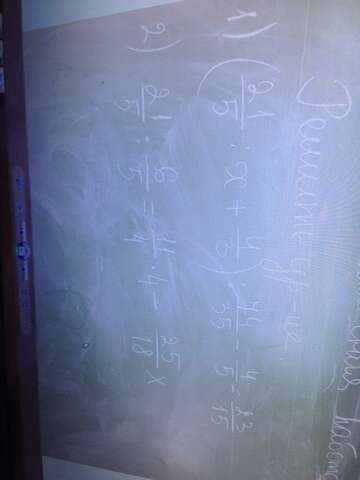 работа
Решите ур-ие:
1) (21/5 : x + 4/3) : 44/35 - 4/5 = 23/15
2) 21/5 : 6/5 = 11/4 · 4 - 25/18 x